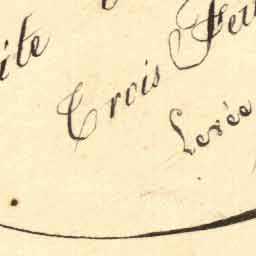 ite
Crois Feu
Levée